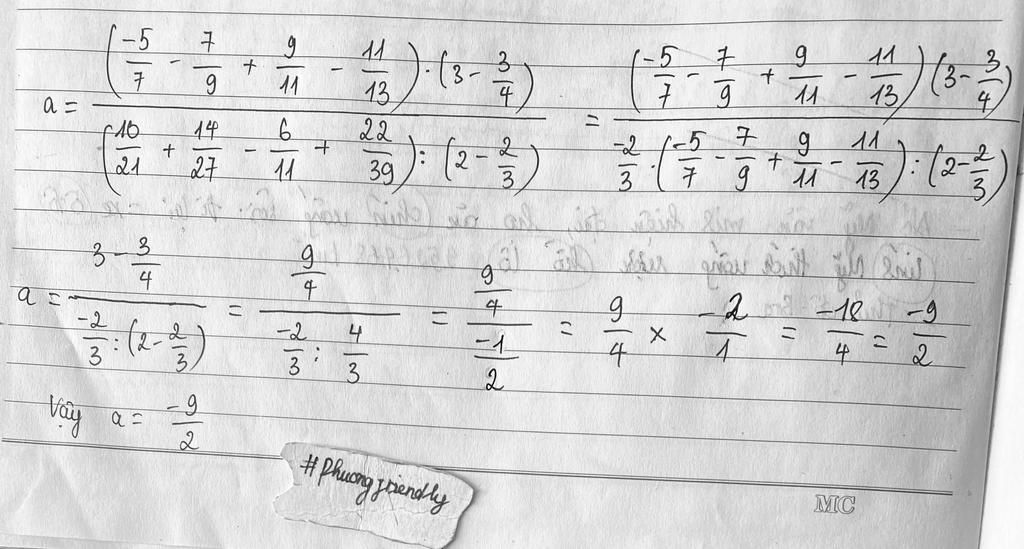 a = ((-5/7 - 7/9 + 9/11 - 11/13) · (3 - 3/4)) / ((10/21 + 14/27 - 6/11 + 22/39) : (2 - 2/3)) = ((-5/7 - 7/9 + 9/11 - 11/13) (3 - 3/4)) / (-2/3 · (-5/7 - 7/9 + 9/11 - 11/13) : (2 - 2/3))
a = (3 - 3/4) / (-2/3 : (2 - 2/3)) = (9/4) / (-2/3 : 4/3) = (9/4) / (-1/2) = 9/4 × -2/1 = -18/4 = -9/2
Vậy a = -9/2
#phuongfriendly
MC